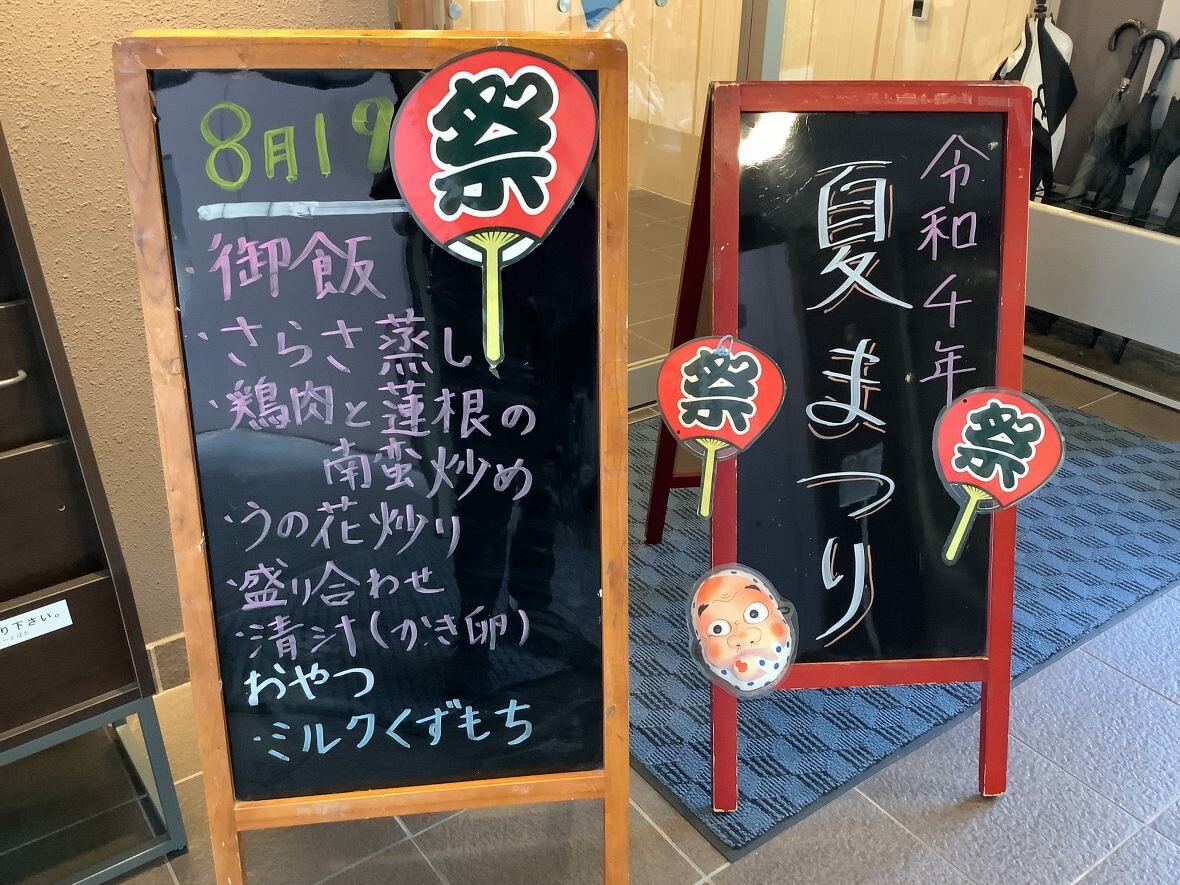 8月19
祭
・御飯
・さらさ蒸し
・鶏肉と蓮根の
南蛮炒め
・うの花炒り
・盛り合わせ
・清汁(かき卵)
おやつ
・ミルクくずもち
令和4年
夏まつり
祭
祭
り下さい。